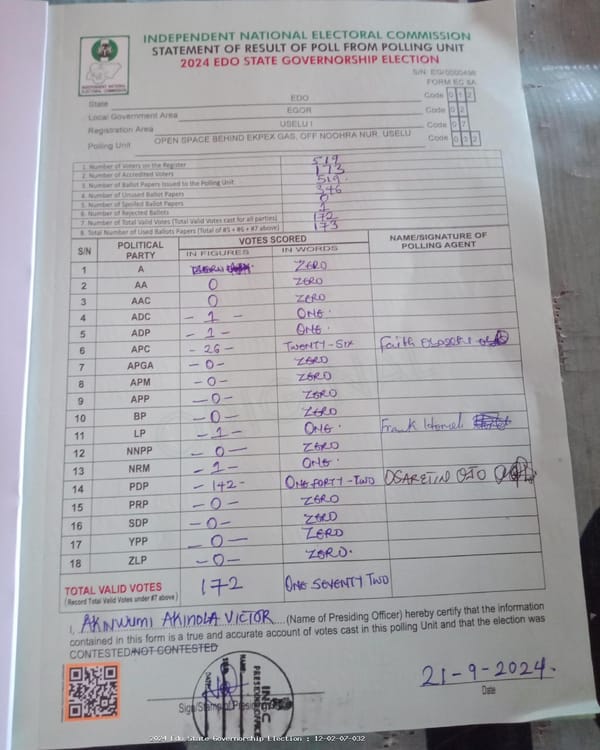 INDEPENDENT NATIONAL ELECTORAL COMMISSION
STATEMENT OF RESULT OF POLL FROM POLLING UNIT
2024 EDO STATE GOVERNORSHIP ELECTION
INDEPENDENT NATIONAL ELECTORAL COMMISSION
S/N: EG/0000498
FORM EC 8A
State EDO Code 0 1 2
Local Government Area EGOR Code 0 2
Registration Area USELU I Code 0 7
Polling Unit OPEN SPACE BEHIND EKPEX GAS, OFF NOOHRA NUR. USELU Code 0 3 2
1. Number of Voters on the Register 519
2. Number of Accredited Voters 173
3. Number of Ballot Papers Issued to the Polling Unit 519
4. Number of Unused Ballot Papers 346
5. Number of Spoiled Ballot Papers 0
6. Number of Rejected Ballots 1
7. Number of Total Valid Votes (Total Valid Votes cast for all parties) 172
8. Total Number of Used Ballots Papers (Total of #5 + #6 + #7 above) 173
S/N POLITICAL PARTY VOTES SCORED NAME/SIGNATURE OF POLLING AGENT
IN FIGURES IN WORDS
1 A ZERO
2 AA 0 ZERO
3 AAC 0 ZERO
4 ADC - 1 - ONE.
5 ADP - 1 - ONE.
6 APC - 26 - TWENTY-SIX Faith
7 APGA - 0 - ZERO
8 APM - 0 - ZERO
9 APP - 0 - ZERO
10 BP - 0 - ZERO
11 LP - 1 - ONE. Frank
12 NNPP - 0 - ZERO
13 NRM - 1 - ONE.
14 PDP - 142 - ONE FORTY-TWO OSARETIN OJO
15 PRP - 0 - ZERO
16 SDP - 0 - ZERO
17 YPP - 0 - ZERO
18 ZLP - 0 - ZERO.
TOTAL VALID VOTES 172 ONE SEVENTY TWO
(Record Total Valid Votes under #7 above)
I, AKINWUMI AKINOLA VICTOR (Name of Presiding Officer) hereby certify that the information
contained in this form is a true and accurate account of votes cast in this polling Unit and that the election was
CONTESTED/NOT CONTESTED
21-9-2024.
Date
INEC
2024 Edo State Governorship Election : 12-02-07-032